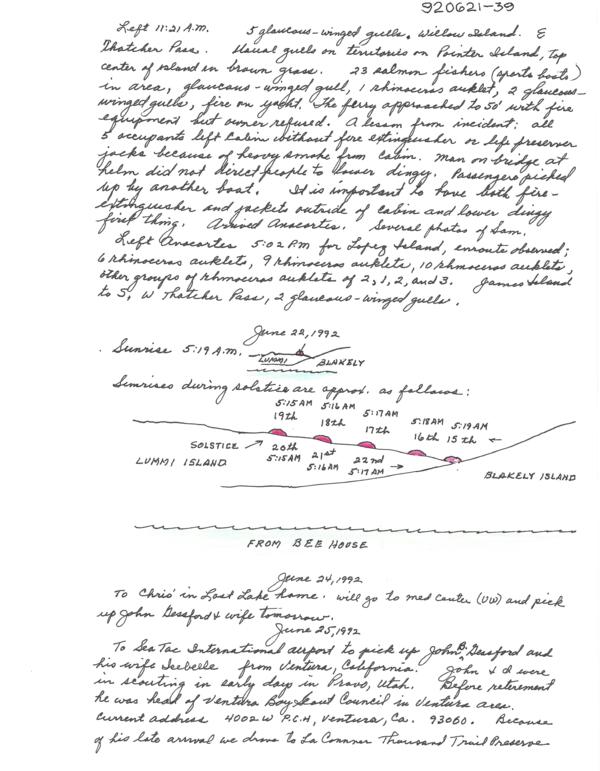 920621-39
Left 11:21 A.M. 5 glaucous-winged gulls, Willow Island. E
Thatcher Pass. Usual gulls on territories on Pointer Island, top
center of island in brown grass. 23 salmon fishers (sports boats)
in area, glaucous-winged gull, 1 rhinoceros auklet, 2 glaucous-
winged gulls, fire on yacht. The ferry approached to 50' with fire
equipment but owner refused. A lesson from incident: all
5 occupants left cabin without fire extinguisher or life preserver
jacks because of heavy smoke from cabin. Man on bridge at
helm did not direct people to lower dingy. Passengers picked
up by another boat. It is important to have both fire-
extinguisher and jackets outside of cabin and lower dingy
first thing. Arrived Anacortes. Several photos of Sam.
Left Anacortes 5:02 P.M for Lopez Island, enroute observed;
6 rhinoceros auklets, 9 rhinoceros auklets, 10 rhinoceros auklets,
other groups of rhinoceros auklets of 2, 1, 2, and 3. James Island
to S, W Thatcher Pass, 2 glaucous-winged gulls.
June 22, 1992
Sunrise 5:19 A.M.
LUMMI BLAKELY
Sunrises during solstice are approx. as follows:
5:15AM 5:16AM 5:17AM 5:18AM 5:19AM
19th 18th 17th 16th 15th
SOLSTICE 20th 21st 22nd
5:15AM 5:16AM 5:17AM
LUMMI ISLAND BLAKELY ISLAND
FROM BEE HOUSE
June 24, 1992
To Chris' in Lost Lake home. will go to med center (UW) and pick
up John Gessford & wife tomorrow.
June 25, 1992
To SeaTac International airport to pick up John B. Gessford and
his wife Isebelle from Ventura, California. John & I were
in scouting in early day in Provo, Utah. Before retirement
he was head of Ventura Boy Scout Council in Ventura area.
Current address 4002 W P.C.H, Ventura, Ca. 93060. Because
of his late arrival we drove to La Conner Thousand Trail Preserve